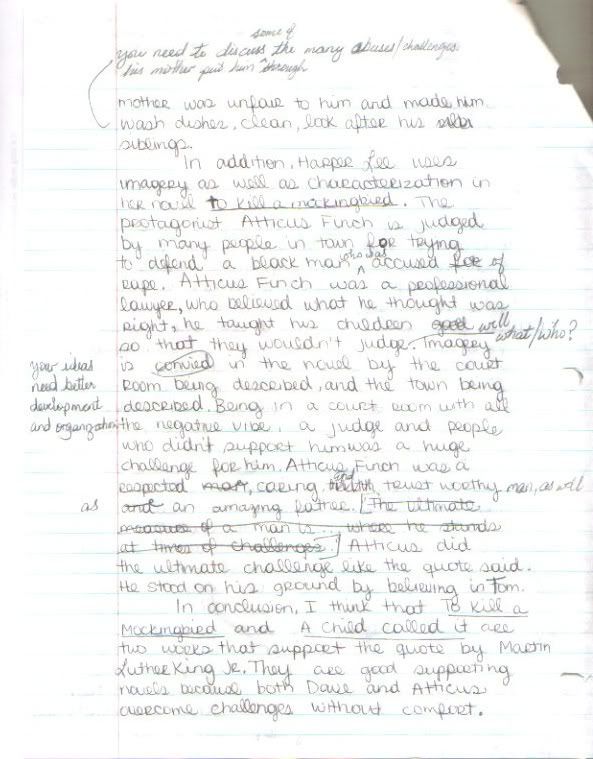 some of
you need to discuss the many abuses/challenges
his mother put him through
mother was unfair to him and made him
wash dishes, clean, look after his
siblings.
In addition, Harper Lee uses
imagery as well as characterization in
her novel to kill a mockingbird. The
protagonist Atticus Finch is judged
by many people in town for trying
to defend a black man who was accused for of
rape. Atticus Finch was a professional
lawyer, who believed what he thought was
right, he taught his children good well
so that they wouldn't judge. Imagery what/who?
your ideas is convied in the novel by the court
need better room being described, and the town being
development described. Being in a court room with all
and organization the negative vibe, a judge and people
who didn't support him was a huge
challenge for him. Atticus Finch was a
respected man, caring, and trust worthy man, as well
as and an amazing father. [The ultimate
measure of a man is... where he stands
at times of challenges.] Atticus did
the ultimate challenge like the quote said.
He stood on his ground by believing in Tom.
In conclusion, I think that To Kill a
Mockingbird and A Child called it are
two works that support the quote by Martin
Luther King Jr. They are good supporting
novels because both Dave and Atticus
overcome challenges without comfort.